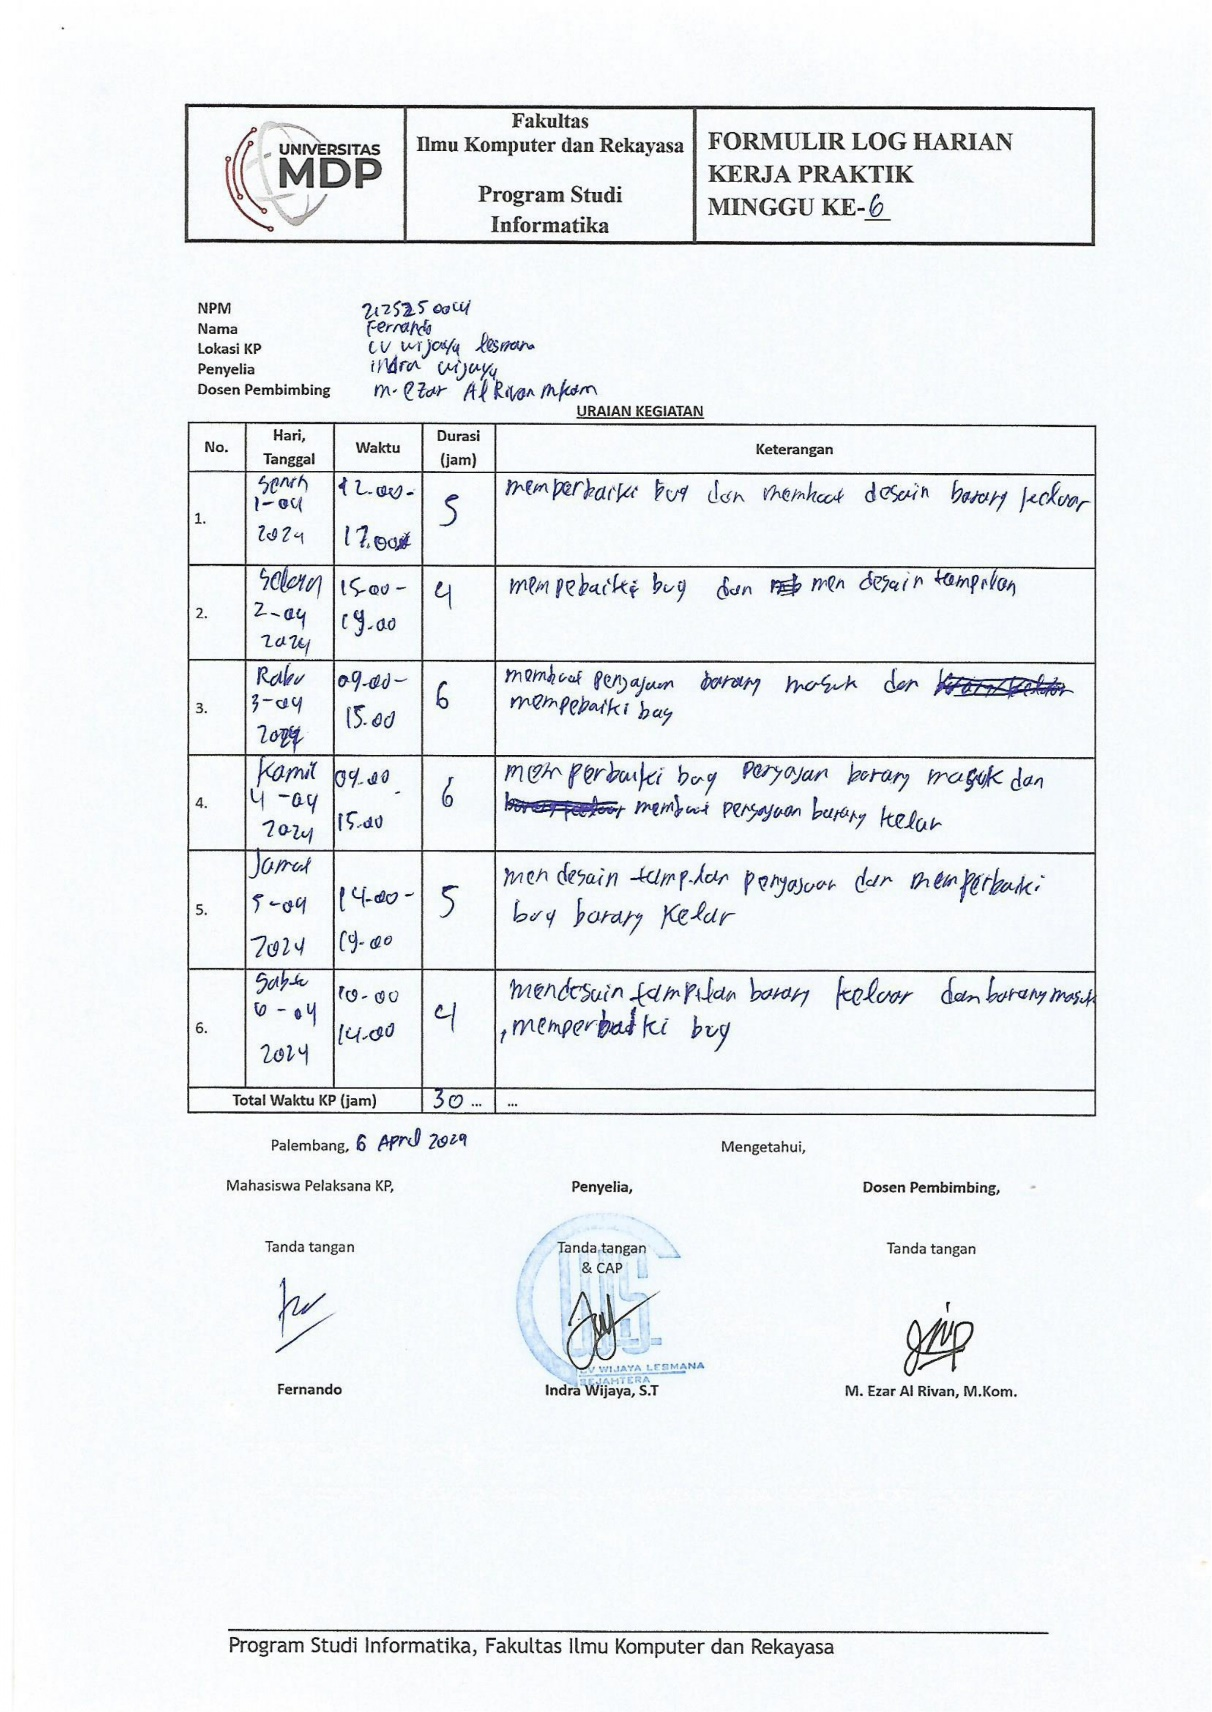 UNIVERSITAS
MDP
Fakultas
Ilmu Komputer dan Rekayasa
Program Studi
Informatika
FORMULIR LOG HARIAN
KERJA PRAKTIK
MINGGU KE-6
NPM
Nama Fernando
Lokasi KP CV wijaya lesmana
Penyelia indra wijaya
Dosen Pembimbing M. Ezar Al Rivan MKom
URAIAN KEGIATAN
No. Hari, Tanggal Waktu Durasi (jam) Keterangan
1. Senin 1-04 2024 12.00- 17.00 5 memperbaiki bug dan membuat desain barang keluar
2. Selasa 2-04 2024 15.00- 19.00 4 mempebaiki bug dan men desain tampilan
3. Rabu 3-04 2024 09.00- 15.00 6 membuat barang masuk dan
mempebaiki bug
4. Kamis 4-04 2024 09.00 - 15.00 6 memperbaiki bug barang masuk dan
membuat barang kelar
5. Jumat 5-04 2024 14.00- 19.00 5 men desain dan memperbaiki
bug barang kelar
6. Sabtu 6-04 2024 10.00 14.00 4 mendesain tampilan barang keluar dan barang masuk
, memperbaiki bug
Total Waktu KP (jam) 30 ... ...
Palembang, 6 April 2024 Mengetahui,
Mahasiswa Pelaksana KP, Penyelia, Dosen Pembimbing,
Tanda tangan Tanda tangan & CAP Tanda tangan
CV WIJAYA LESMANA
SEJAHTERA
Fernando Indra Wijaya, S.T M. Ezar Al Rivan, M.Kom.
Program Studi Informatika, Fakultas Ilmu Komputer dan Rekayasa